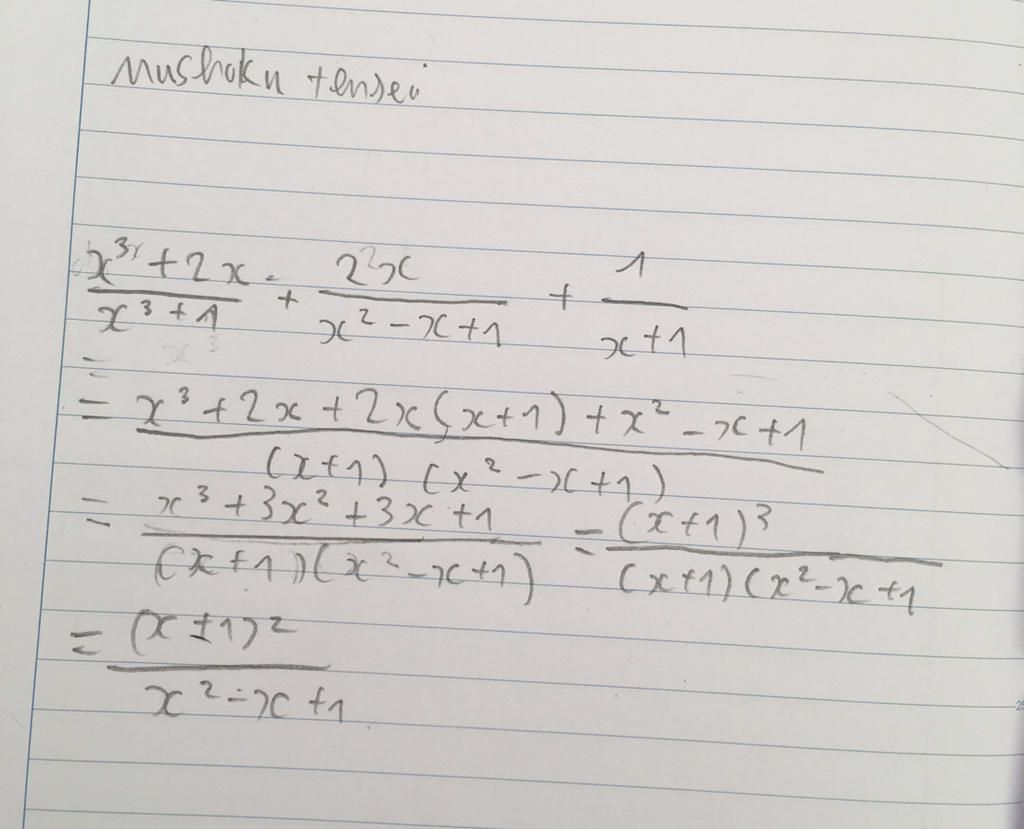 Mushoku tensei
x³ + 2x / x³ + 1 + 2x / x² - x + 1 + 1 / x + 1
=
= x³ + 2x + 2x(x+1) + x² - x + 1 / (x+1) (x² - x + 1)
= x³ + 3x² + 3x + 1 / (x+1)(x² - x + 1) = (x+1)³ / (x+1)(x² - x + 1
= (x+1)² / x² - x + 1